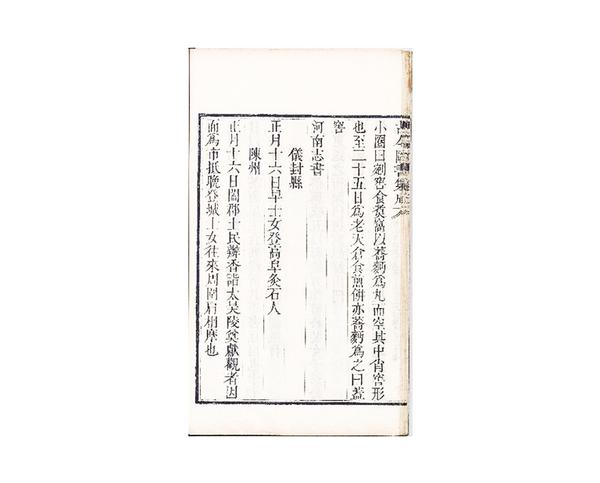 古今圖書集成
小圈曰剜窖食煑窩以蕎麵爲丸而空其中肖窖形
也至二十五日爲老天倉食煎餅亦蕎麵爲之曰蓋
窖
河南志書
儀封縣
正月十六日早士女登高阜灸石人
陳州
正月十六日闔郡士民辦香詣太昊陵奠獻觀者因
而爲市抵晚登城士女往來周圍肩相摩也